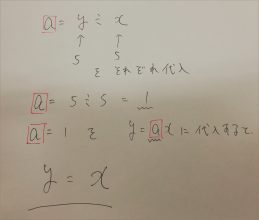 a = y ÷ x
↑ ↑
5 5
を それぞれ代入
a = 5 ÷ 5 = 1
a = 1 を y = a x に代入すると、
y = x